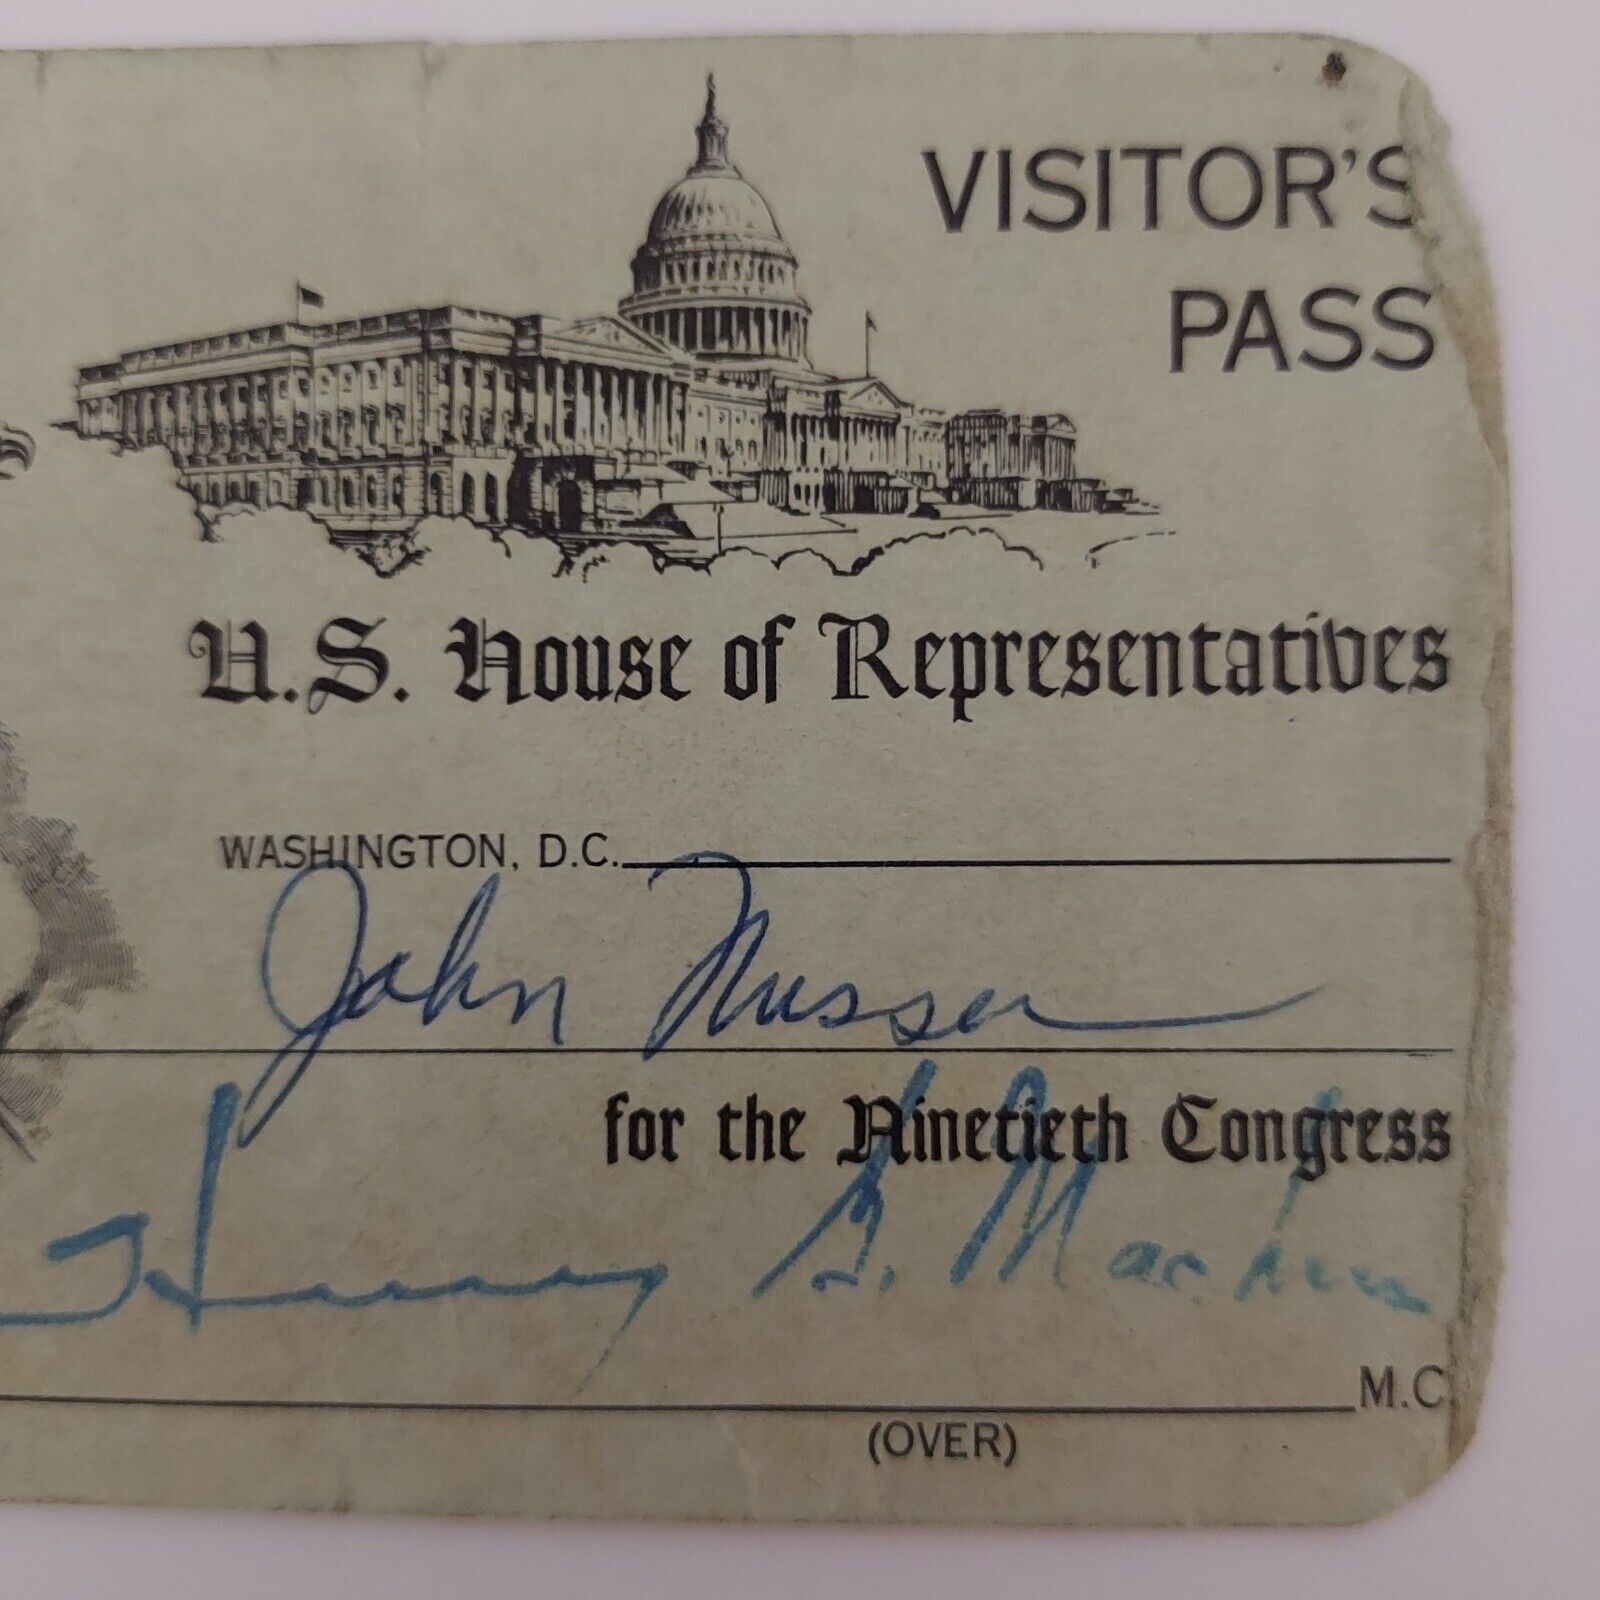 VISITOR'S
PASS
U.S. House of Representatives
WASHINGTON, D.C.
John Musser
for the Ninetieth Congress
Hervey G. Machen
M.C.
(OVER)